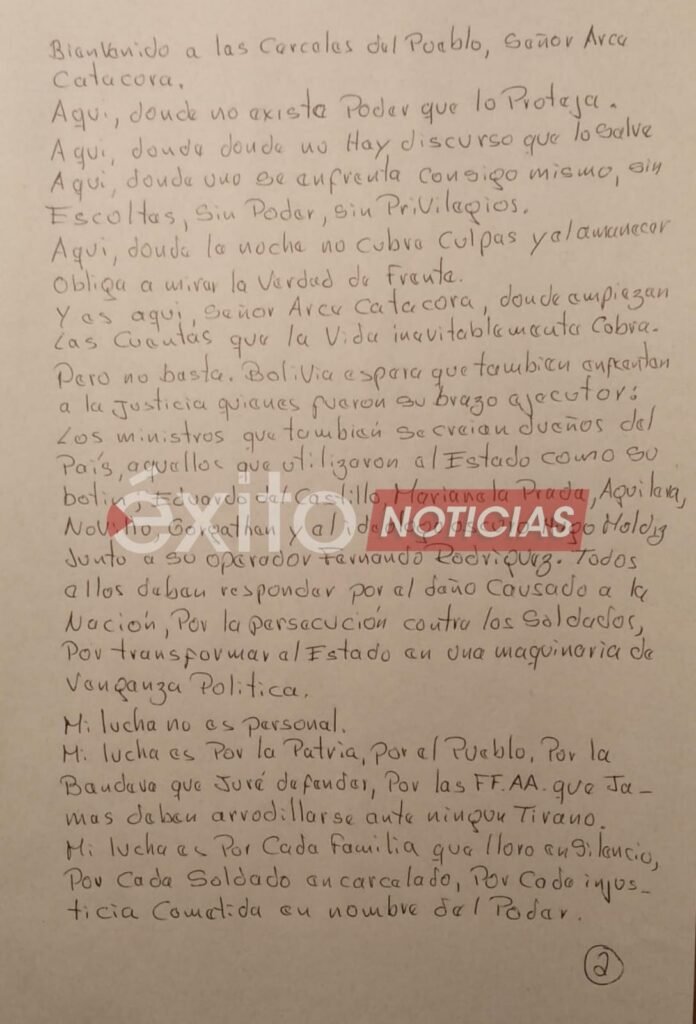 Bienvenido a las Carceles del Pueblo, Señor Arce
Catacora.
Aqui, donde no existe Poder que lo Proteja.
Aqui, donde donde no Hay discurso que lo salve
Aqui, donde uno se enfrenta consigo mismo, sin
Escoltas, Sin Poder, sin Privilegios.
Aqui, donde la noche no cubre culpas y el amanecer
obliga a mirar la Verdad de Frente.
Y es aqui, Señor Arce Catacora, donde empiezan
Las Cuentas que la Vida inevitablemente Cobra.
Pero no basta. Bolivia espera que tambien enfrentan
a la justicia quienes fueron su brazo ejecutor:
Los ministros que tambien se creian dueños del
País, aquellos que utilizaron al Estado como su
botin, Eduardo del Castillo, Marianela Prada, Aquilera,
éxito NOTICIAS
Novillo, y al Hugo Moldiz
Junto a su operador Fernando Rodriguez. Todos
ellos deben responder por el daño Causado a la
Nación, Por la persecución contra los Soldados,
Por transformar al Estado en una maquinaria de
Venganza Politica.
Mi lucha no es personal.
Mi lucha es Por la Patria, por el Pueblo, Por la
Bandera que Juré defender, Por las FF.AA. que Ja-
mas deben arrodillarse ante ningun Tirano.
Mi lucha es Por Cada familia que lloro en Silencio,
Por Cada Soldado encarcelado, Por Cada injus-
ticia Cometida en nombre del Poder.
2